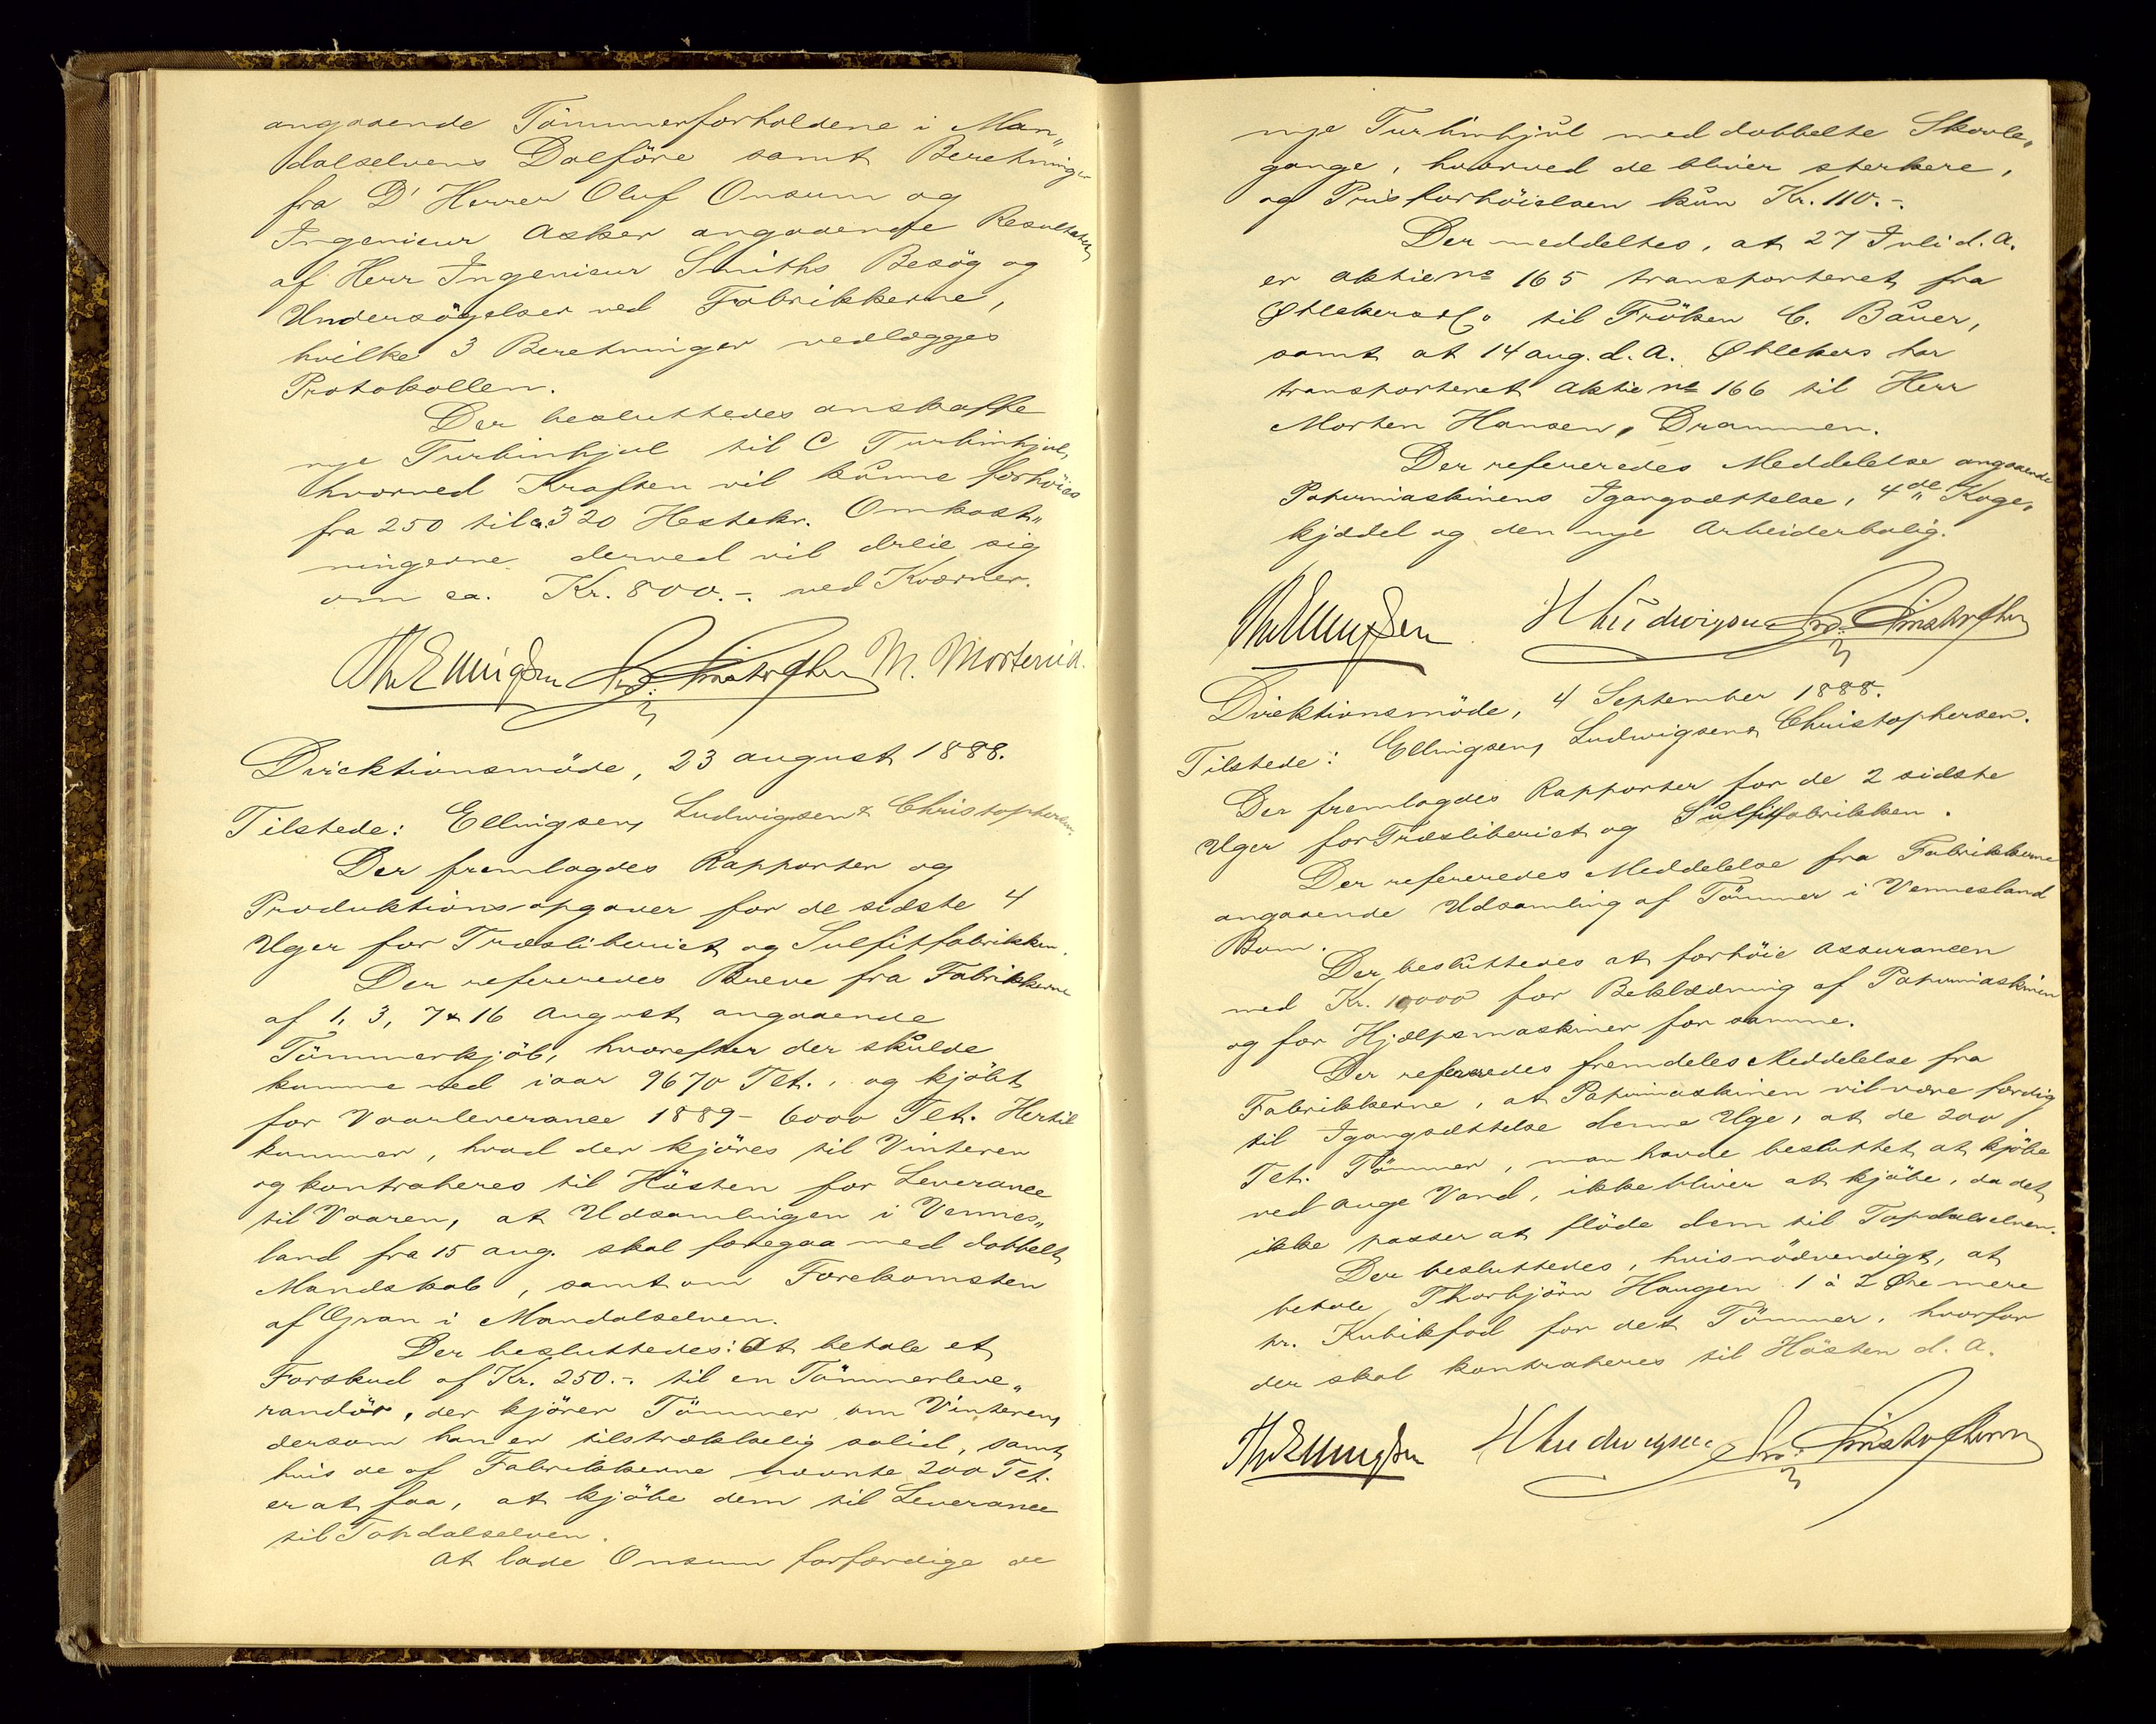 angaaende Tömmerforholdene i Man„
dalselvens Dalföre samt Beretninger
fra D' Herrer Oluf Onsum og
Ingenieur Asker angaaende Resultatet
af Herr Ingenieur Smiths Besög og
Undersögelser ved Fabrikkerne,
hvilke 3 Beretninger vedlægges
Protokollen.
Der besluttedes anskaffe
nye Turbinhjul til C Turbinhjul,
hvorved Kraften vil kunne forhöies
fra 250 til a. 320 Hestekr. Omkost„
ningerne derved vil dreie sig
om ca. Kr. 800.-. ved Kværner.
ThEllingsen Chr. Christophersen M. Mortensen
Direktionsmöde, 23 august 1888.
Tilstede: Ellingsen, Ludwigsen & Christophersen.
Der fremlagdes Rapporter og
Produktionsopgaver for de sidste 4
Uger for Træsliberiet og Sulfitfabrikken.
Der refereredes Breve fra Fabrikkerne
af 1, 3, 7 & 16 August angaaende
Tömmerkjöb, hvorefter der skulde
komme ned iaar 9670 Tlt., og kjöbt
for Vaarleverance 1889 - 6000 Tlt. Hertil
kommer, hvad der kjöres til Vinteren
og kontraheres til Hösten for Leverance
til Vaaren, at Udsamlingen i Vennes„
land fra 15 aug. skal foregaa med dobbelt
Mandskab, samt om Forekomsten
af Gran i Mandalselven.
Der besluttedes: At betale et
Forskud af Kr. 250.-. til en Tömmerleve„
randör, der kjörer Tömmer om Vinteren,
dersom han er tilstrækkelig solid, samt
hvis de af Fabrikkerne nævnte 200 Tlt.
er at faa, at kjöbe dem til Leverance
til Topdalselven.
At lade Onsum forfærdige de
nye Turbinhjul med dobbelte Skovle„
gange, hvorved de bliver sterkere,
og Prisforhöielsen kun Kr. 110.-.
Der meddeltes, at 27 Juli d. A.
er aktie no 165 transporteret fra
Øhlckers & Co til Fröken C. Bauer,
samt at 14 aug. d. A. Øhlckers har
transporteret Aktie no 166 til Herr
Morten Hansen, Drammen.
Der refereredes Meddelelse angaaende
Papirmaskinens Igangsættelse, 4de Koge„
kjedel og den nye Arbeiderbolig.
ThEllingsen HLudwigsen Chr. Christophersen
Direktionsmöde, 4 September 1888.
Tilstede: Ellingsen, Ludwigsen & Christophersen.
Der fremlagdes Rapporter for de 2 sidste
Uger for Træsliberiet og Sulfitfabrikken.
Der refereredes Meddelelse fra Fabrikkerne
angaaende Udsamling af Tömmer i Vennesland
Bom.
Der besluttedes at forhöie Assurancen
med Kr. 10000 for Beklædning af Papirmaskinen
og for Hjælpemaskiner for samme.
Der refereredes fremdeles Meddelelse fra
Fabrikkerne, at Papirmaskinen vil være færdig
til Igangsættelse denne Uge, at de 200
Tlt. Tömmer, man havde besluttet at kjöbe
ved Auge Vand, ikke bliver at kjöbe, da det
ikke passer at flöde dem til Topdalselven.
Der besluttedes, hvis nödvendigt, at
betale Thorbjörn Haugen 1 à 2 Øre mere
pr. Kubikfod for det Tömmer, hvorfor
der skal kontraheres til Hösten d. A.
ThEllingsen HLudwigsen Chr. Christophersen